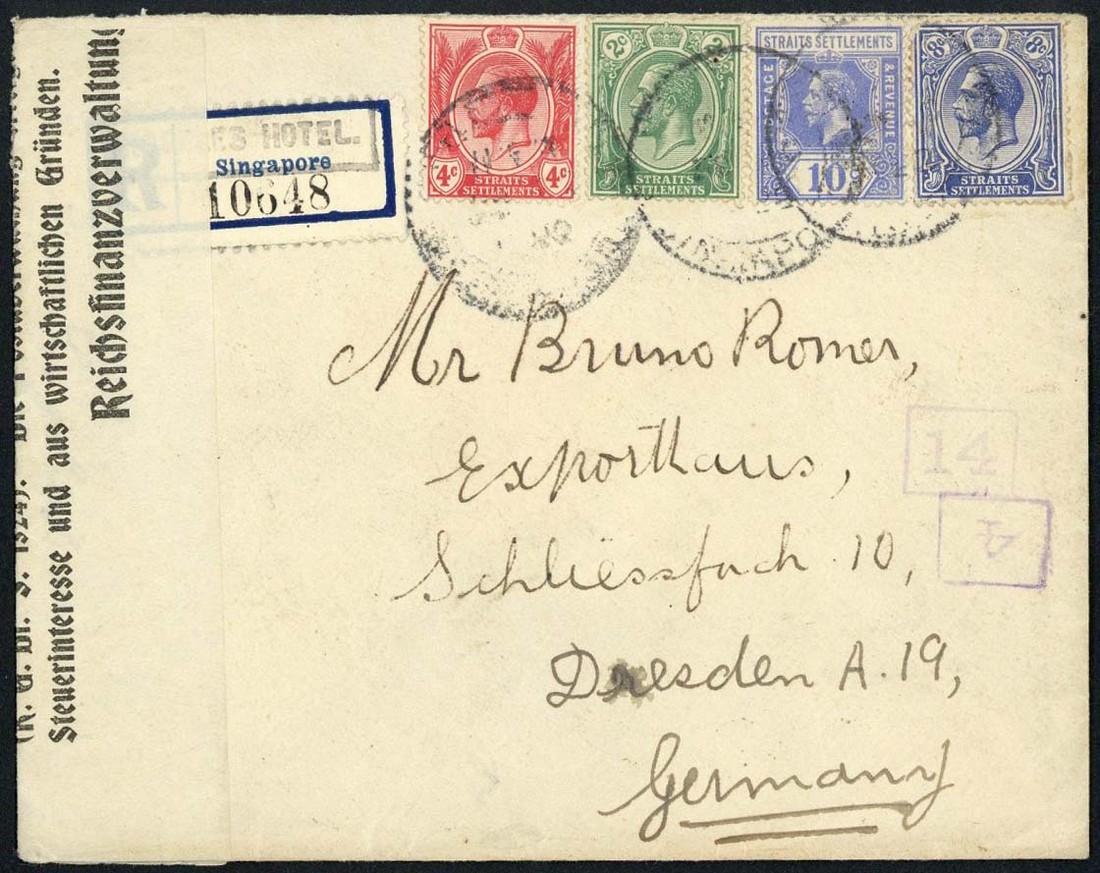 4c 4c
STRAITS
SETTLEMENTS
2c 2c
STRAITS
SETTLEMENTS
STRAITS SETTLEMENTS
POSTAGE & REVENUE
10c
8c 8c
STRAITS
SETTLEMENTS
HOTEL.
Singapore
10648
Mr Bruno Romer,
Exporthaus,
Schliessfach 10,
Dresden A. 19,
Germany
14
4
(R. G. Bl. S. 1924). Die
Steuerinteresse und aus wirtschaftlichen Gründen.
Reichsfinanzverwaltung